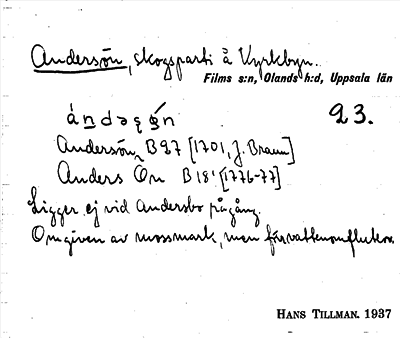 Andersön, skogsparti å Kyrkbyn.
Films s:n, Olands h:d, Uppsala län
23.
Andersön, B 27 [1701, J. Braun]
Anders Ön B 18 [1776-77]
Ligger ej vid Andersbo
Omgiven av mossmark, men
HANS TILLMAN. 1937